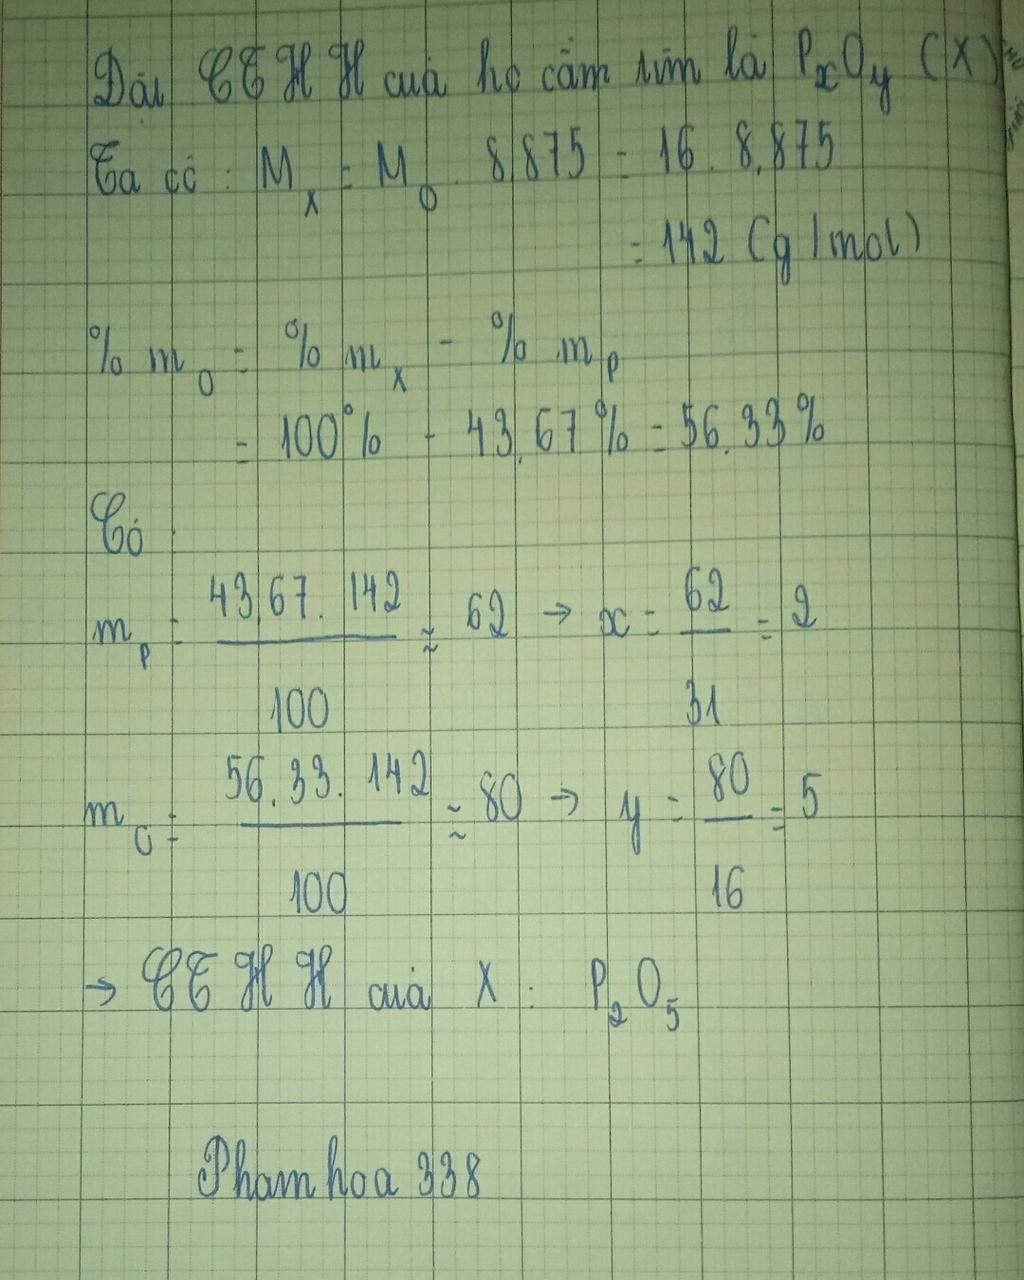 Đặt CTHH của hc cần tìm là PxOy (X)
Ta có : Mx = MO . 8,875 = 16 . 8,875
= 142 (g/mol)
% mO = % mx - % mP
= 100% - 43,67% = 56,33%
Có :
mP = 43,67 . 142 / 100 ≈ 62 → x = 62 / 31 = 2
mO = 56,33 . 142 / 100 ≈ 80 → y = 80 / 16 = 5
→ CTHH của X : P2O5
Phamhoa 338